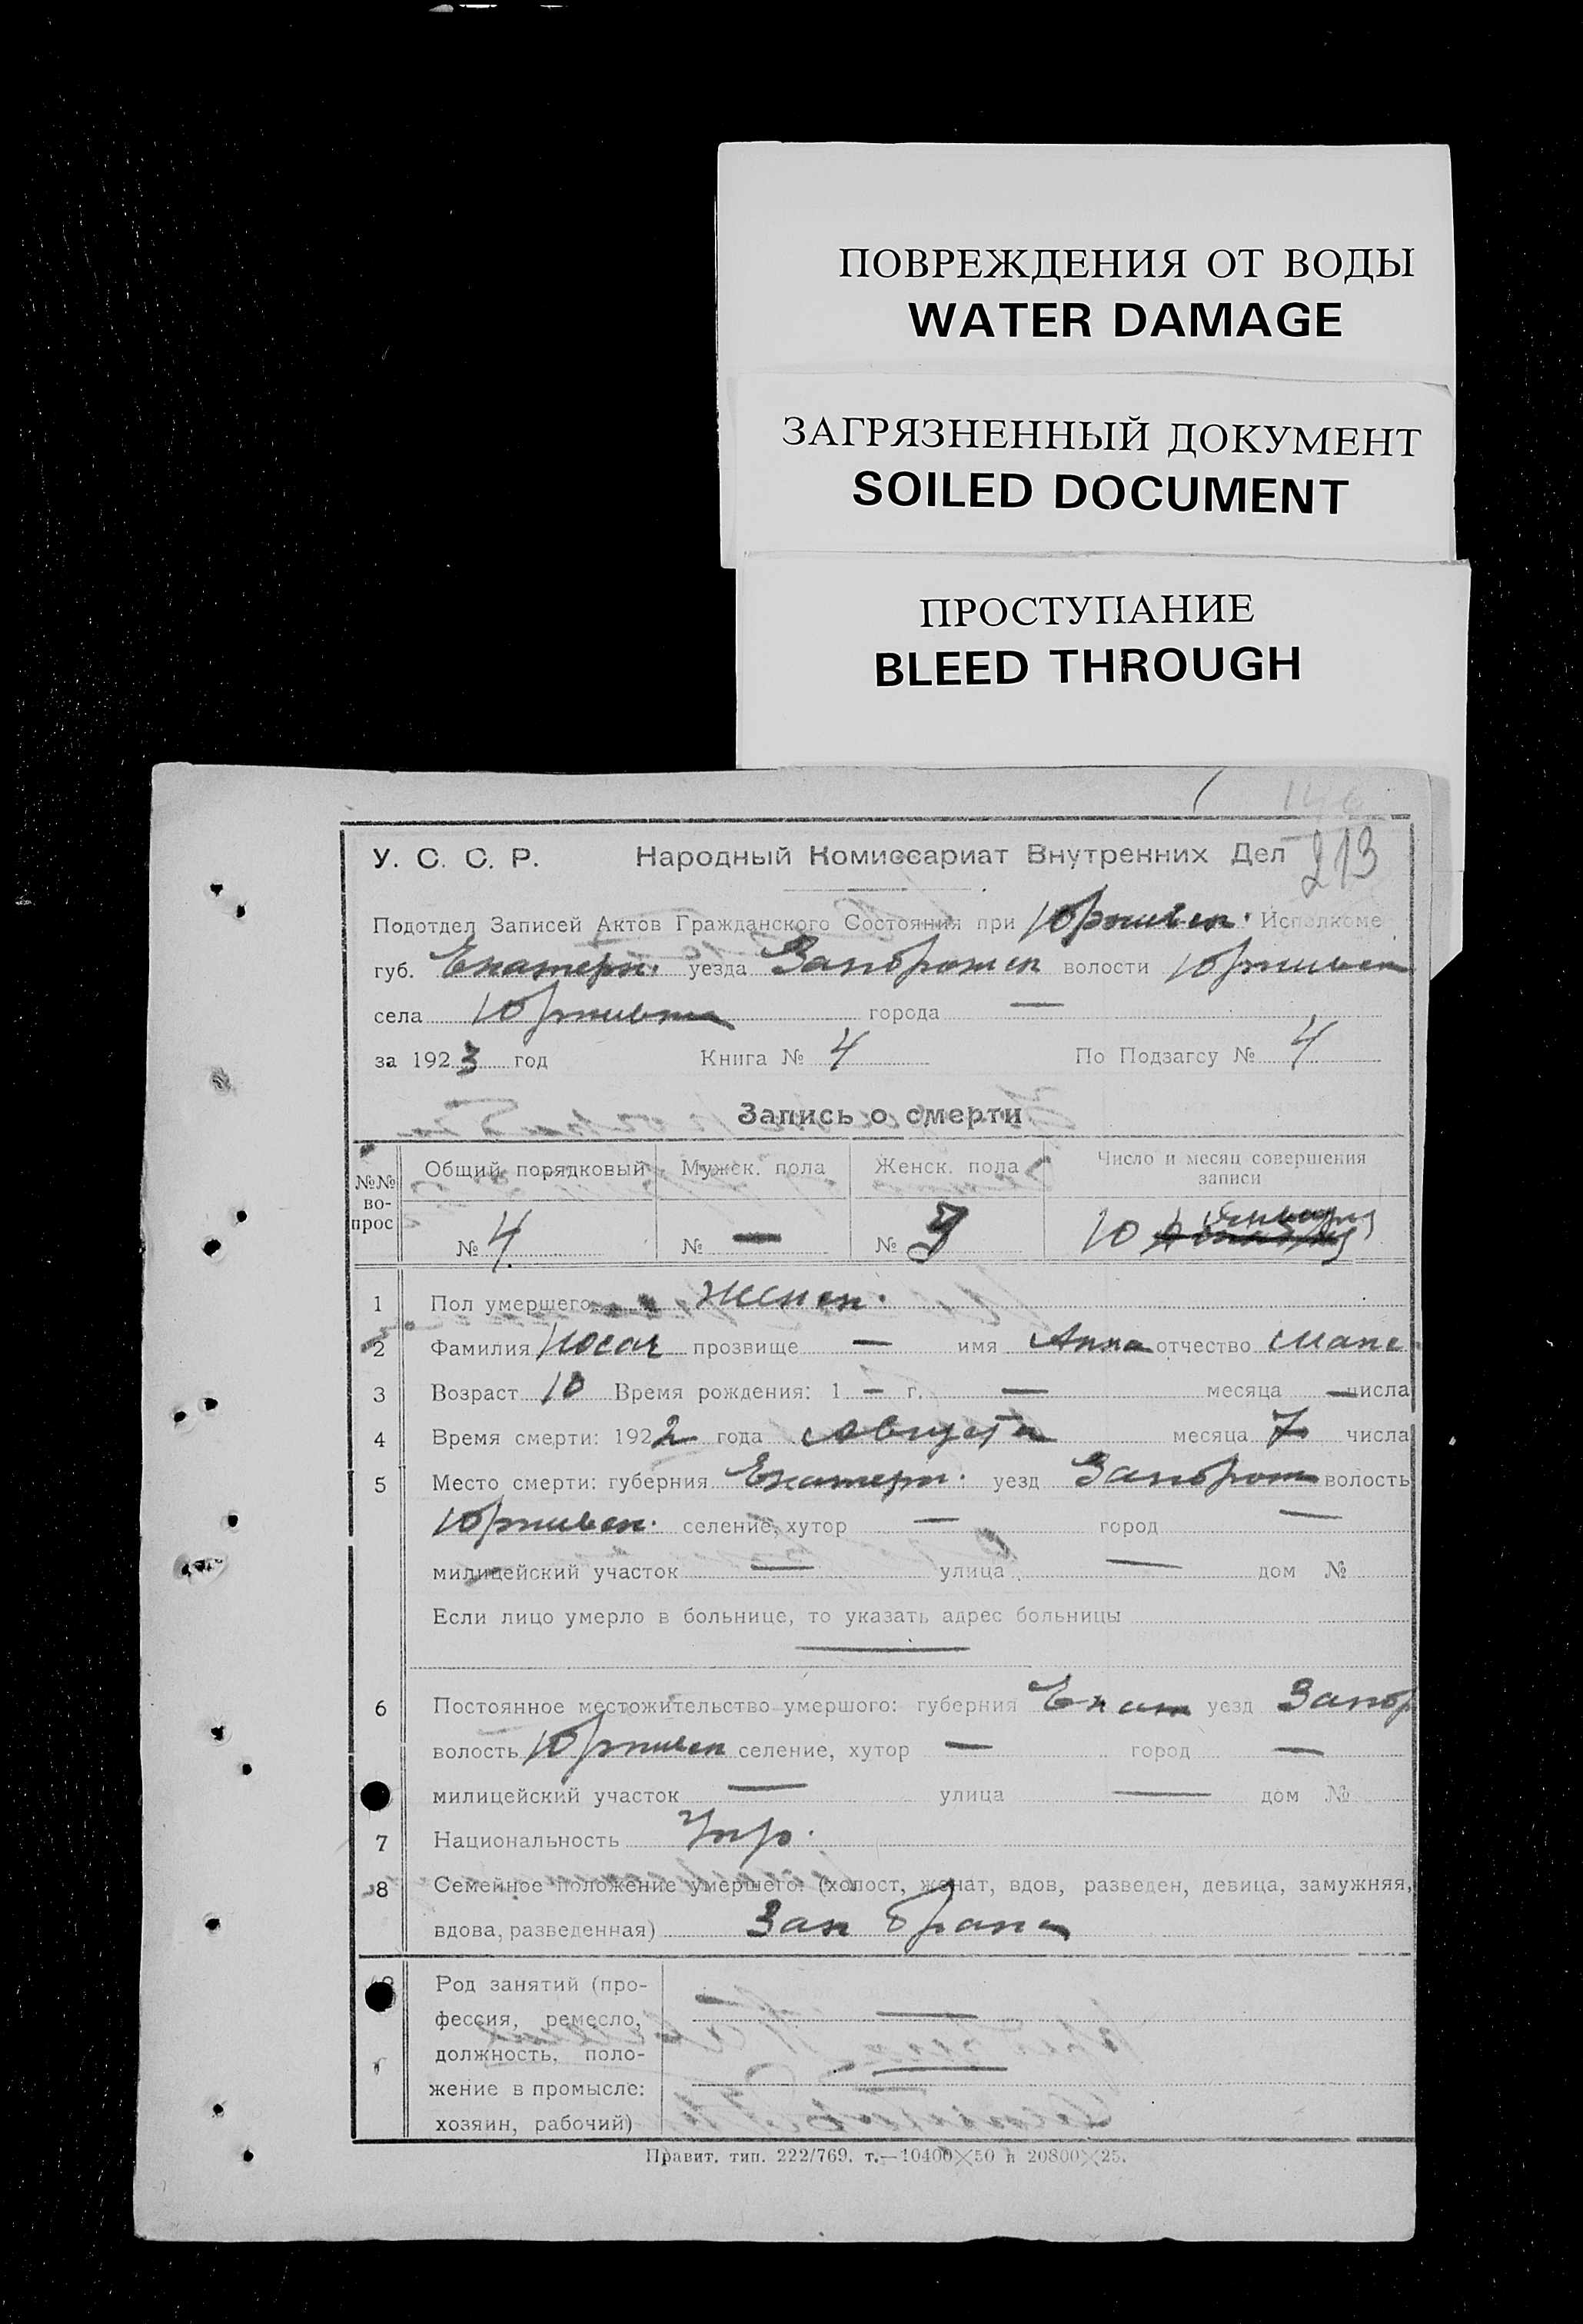 ПОВРЕЖДЕНИЯ ОТ ВОДЫ
WATER DAMAGE
ЗАГРЯЗНЕННЫЙ ДОКУМЕНТ
SOILED DOCUMENT
ПРОСТУПАНИЕ
BLEED THROUGH
213
У. С. С. Р. Народный Комиссариат Внутренних Дел
Подотдел Записей Актов Гражданского Состояния при Исполкоме
губ. Екатери. уезда Запорожск волости
села города —
за 1923 год Книга № 4 По Подзагсу № 4
Запись о смерти
№№ во-прос Общий порядковый Мужск. пола Женск. пола Число и месяц совершения записи
№ 4 № — № 10
1 Пол умершего женск.
2 Фамилия Носач прозвище — имя Анна отчество
3 Возраст 10 Время рождения: 1 — г. — месяца — числа
4 Время смерти: 1922 года Августа месяца 7 числа
5 Место смерти: губерния Екатери. уезд Запорож волость
селение, хутор — город —
милицейский участок — улица — дом №
Если лицо умерло в больнице, то указать адрес больницы
—
6 Постоянное местожительство умершого: губерния Екат уезд Запор
волость селение, хутор — город —
милицейский участок — улица — дом №
7 Национальность Укр.
8 Семейное положение умершего: (холост, женат, вдов, разведен, девица, замужняя,
вдова, разведенная)
Род занятий (про-
фессия, ремесло, —
должность, поло- —
жение в промысле:
хозяин, рабочий)
Правит. тип. 222/769. т.—10400×50 и 20800×25.